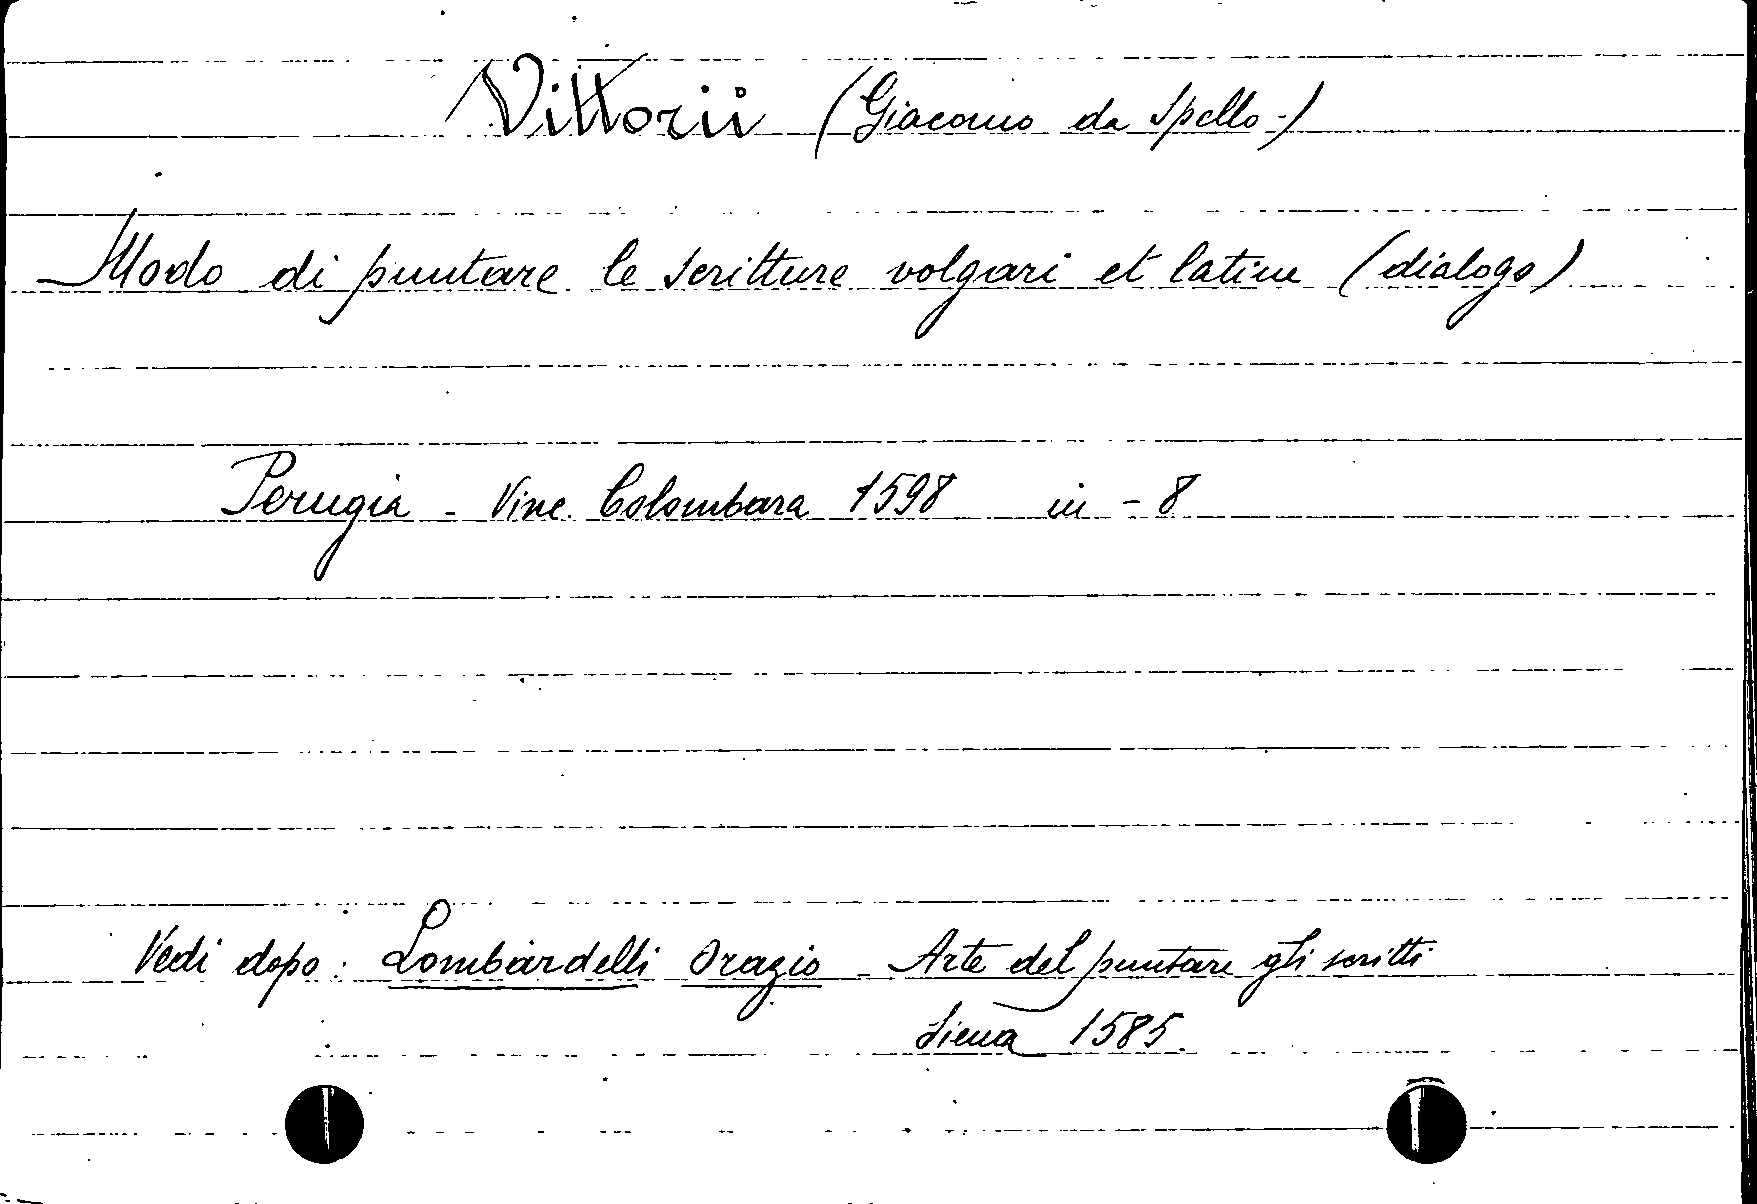 Vittorii (Giacomo da Spello-)
Modo di puntare le scritture volgari et latine (dialogo)
Perugia - Vinc. Colombara 1598 in - 8
Vedi dopo: Lombardelli Orazio - Arte del puntare gli scritti
Siena 1585.